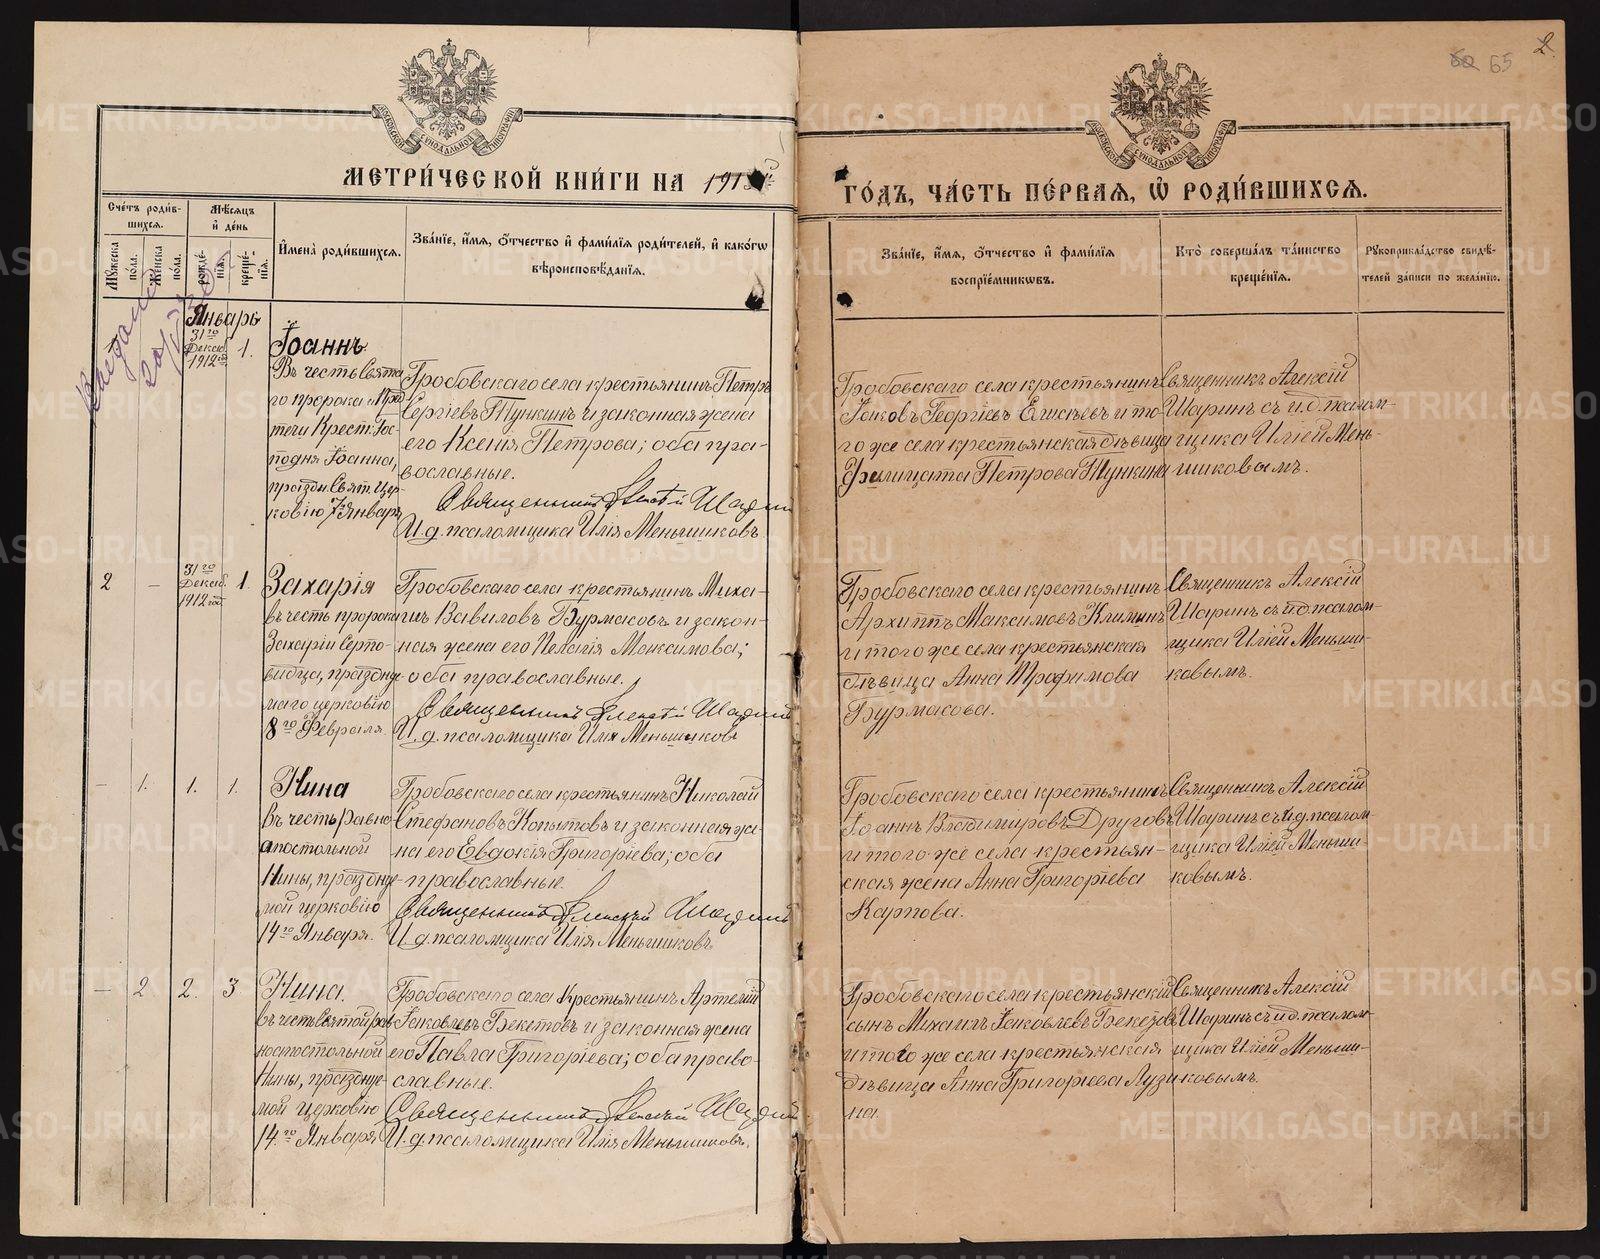 2
60 65
МОСКОВСКОЙ СѴНОДАЛЬНОЙ ТИПОГРАФІИ
МОСКОВСКОЙ СѴНОДАЛЬНОЙ ТИПОГРАФІИ
МЕТРИ́ЧЕСКОЙ КНИ́ГИ НА 1913
ГО́ДЪ, ЧА́СТЬ ПЕ́РВАѦ, Ѡ҆ РОДИ́ВШИХСѦ.
Сче́тъ роди́в-
шихсѧ.
Мꙋ́жеска по́ла.
Же́нска по́ла.
Мѣ́сѧцъ
и҆ де́нь
рожде́-нїѧ.
креще́-нїѧ.
И҆мена̀ роди́вшихсѧ.
Зва́нїе, и҆́мѧ, ѻ҆́тчество и҆ фами́лїѧ роди́телей, и҆ како́гѡ
вѣроисповѣ́данїѧ.
Зва́нїе, и҆́мѧ, ѻ҆́тчество и҆ фами́лїѧ
воспрїе́мникѡвъ.
Кто̀ соверша́лъ та́инство
креще́нїѧ.
Рꙋкоприкла́дство свидѣ́-
телей за́писи по жела́нїю.
Январь
31го
Декаб.
1912 год.
1.
Іоаннъ
Въ честь Свята
го пророка и Пред
течи Крест. Гос-
подня Іоанна,
праздн. Свят. Цер-
ковію 7го Января
Гробовскаго села крестьянинъ Петръ
Сергіевъ Тункинъ и законная жена
его Ксенія Петрова; оба пра-
вославные.
Священникъ Алексій Шарин
И. д. псаломщика Илія Меньшиковъ
Гробовскаго села крестьянинъ
Іаковъ Георгіевъ Елисѣевъ и то-
го же села крестьянская дѣвица
Филицата Петрова Тункина
Священникъ Алексій
Шаринъ съ и.д. псалом-
щика Иліей Мень-
шиковымъ.
2
—
31го
Декаб.
1912 год.
1.
Захарія
въ честь пророка
Захаріи Серпо-
видца, праздну-
маго церковію
8го Февраля.
Гробовскаго села крестьянинъ Миха-
илъ Вавиловъ Бурмасовъ и закон-
ная жена его Пелагія Максимова;
оба православные.
Священникъ Алексій Шарин
И. д. псаломщика Илія Меньшиковъ
Гробовскаго села крестьянинъ
Архиппъ Максимовъ Климинъ
и того же села крестьянская
дѣвица Анна Трофимова
Бурмасова.
Священникъ Алексій
Шаринъ съ и.д. псалом-
щика Иліей Меньши-
ковымъ.
—
1.
1.
1.
Нина
въ честь равно
апостольной
Нины, праздну-
мой церковію
14го Января.
Гробовскаго села крестьянинъ Николай
Стефановъ Копытовъ и законная же-
на его Евдокія Григоріева; оба
православные.
Священникъ Алексій Шарин
И. д. псаломщика Илія Меньшиковъ
Гробовскаго села крестьянинъ
Іоаннъ Владимировъ Друговъ
и того же села крестьян-
ская жена Анна Григоріева
Карпова.
Священникъ Алексій
Шаринъ съ и.д. псалом-
щика Иліей Меньши-
ковымъ.
—
2
2.
3
Нина.
въ честь святой рав
ноапостольной
Нины, праздну-
мой церковію
14го Января
Гробовскаго села крестьянинъ Артемій
Іаковлевъ Бекетовъ и законная жена
его Павла Григоріева; оба право-
славные.
Священникъ Алексій Шарин
И. д. псаломщика Илія Меньшиковъ.
Гробовскаго села крестьянскій
сынъ Михаилъ Іаковлевъ Бекетовъ
и того же села крестьянская
дѣвица Анна Григоріева Лузи
на.
Священникъ Алексій
Шаринъ съ и.д. псалом-
щика Иліей Меньши-
ковымъ.
METRIKI.GASO-URAL.RU